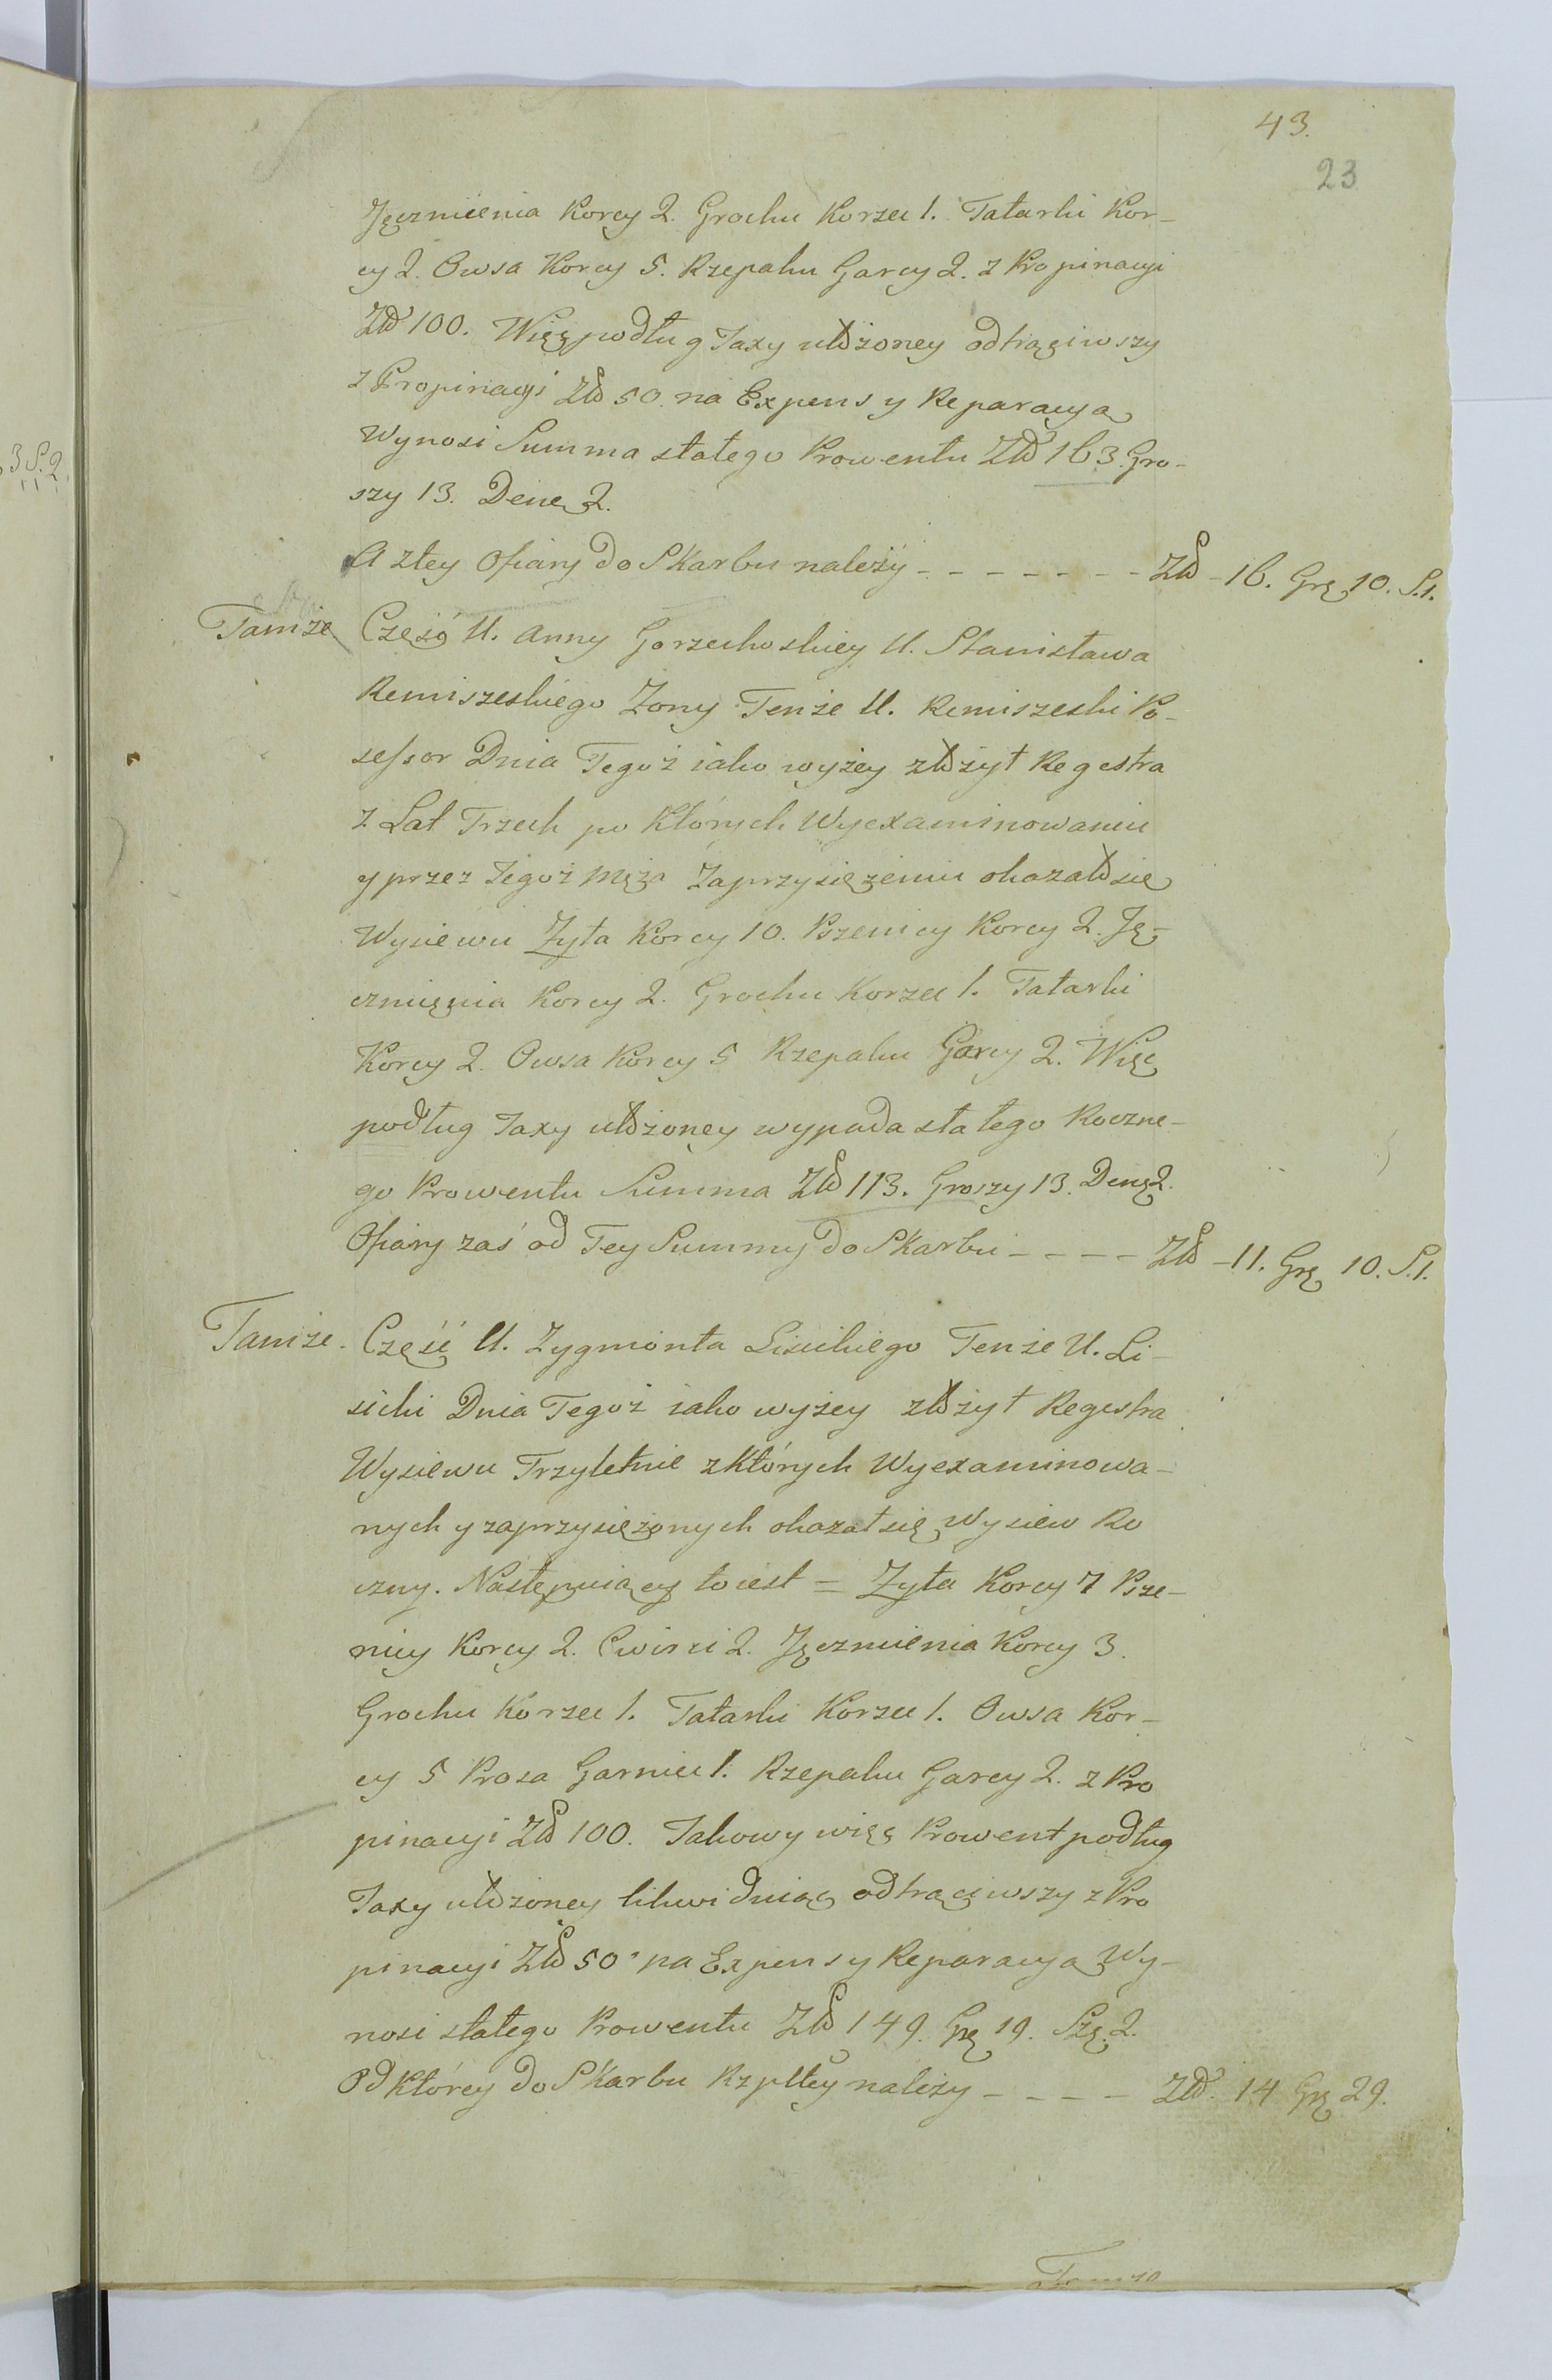 43.
23
3 S. 2.
Jęczmienia Korcy 2. Grochu Korzec 1. Tatarki Kor-
cy 2. Owsa Korcy 5. Rzepaku Garcy 2. z Propinacyi
Złł 100. Więc podług Taxy ułożoney odtrąciwszy
z Propinacyi Złł 50. na Expens y Reparacyą
Wynosi Summa stałego Prowentu Złł 163. Gro-
szy 13. Dene 2.
A ztey Ofiary do Skarbu należy - - - - - - - Złł - 16. Gr 10. S. 1.
Tamże Część U. Anny Gorzechoskiey U. Stanisława
Remiszeskiego Zony Tenże U. Remiszeski Po-
sessor Dnia Tegoż iako wyżey złożył Regestra
z Lat Trzech po Których Wyexaminowaniu
y przez Tegoż Męża Zaprzysiężeniu okazało się
Wysiewu Zyta Korcy 10. Pszenicy Korcy 2. Ję-
czmienia Korcy 2. Grochu Korzec 1. Tatarki
Korcy 2. Owsa Korcy 5 Rzepaku Garcy 2. Więc
podług Taxy ułożoney wypada stałego Roczne-
go Prowentu Summa Złł 113. Groszy 13. Den 2.
Ofiary zaś od Tey Summy do Skarbu - - - - Złł - 11. Gr 10. S. 1.
Tamże. Część U. Zygmonta Lisickiego Tenże U. Li-
sicki Dnia Tegoż iako wyżey złożył Regestra
Wysiewu Trzyletnie z Których Wyexaminowa-
nych y zaprzysiężonych okazał się Wysiew Ro
czny. Następuiący to iest = Zyta Korcy 7 Psze-
nicy Korcy 2. Cwirci 2. Jęczmienia Korcy 3.
Grochu Korzec 1. Tatarki Korzec 1. Owsa Kor-
cy 5 Prosa Garniec 1. Rzepaku Garcy 2. z Pro
pinacyi Złł 100. Takowy więc Prowent podług
Taxy ułożoney likwiduiąc odtrąciwszy z Pro
pinacyi Złł 50. na Expens y Reparacyą Wy-
nosi stałego Prowentu Złł 149. Gr 19. Sz. 2.
Od Którey do Skarbu Rzpltey należy - - - - Złł. 14 Gr 29.
Tamże